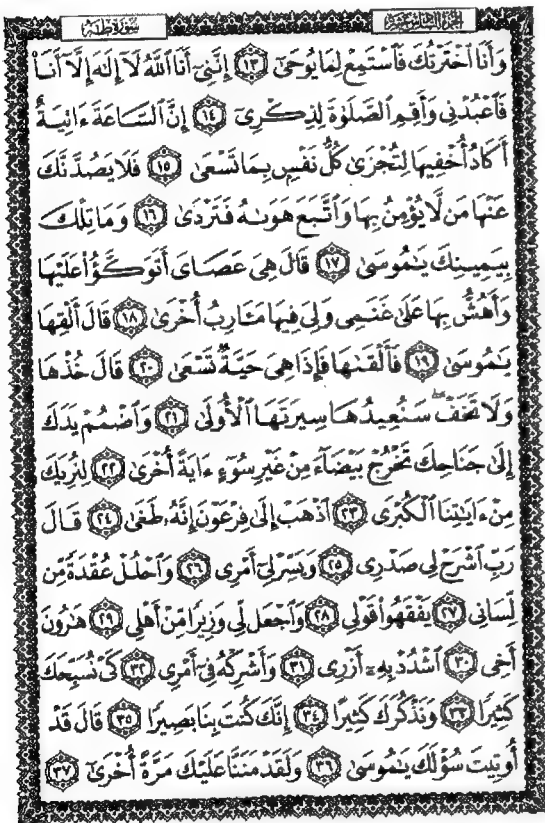 سورة طه الجزء السادس عشر
وَأَنَا ٱخْتَرْتُكَ فَٱسْتَمِعْ لِمَا يُوحَىٰٓ ﴿١٣﴾ إِنَّنِىٓ أَنَا ٱللَّهُ لَآ إِلَٰهَ إِلَّآ أَنَا۠
فَٱعْبُدْنِى وَأَقِمِ ٱلصَّلَوٰةَ لِذِكْرِىٓ ﴿١٤﴾ إِنَّ ٱلسَّاعَةَ ءَاتِيَةٌ
أَكَادُ أُخْفِيهَا لِتُجْزَىٰ كُلُّ نَفْسٍۭ بِمَا تَسْعَىٰ ﴿١٥﴾ فَلَا يَصُدَّنَّكَ
عَنْهَا مَن لَّا يُؤْمِنُ بِهَا وَٱتَّبَعَ هَوَىٰهُ فَتَرْدَىٰ ﴿١٦﴾ وَمَا تِلْكَ
بِيَمِينِكَ يَٰمُوسَىٰ ﴿١٧﴾ قَالَ هِىَ عَصَاىَ أَتَوَكَّؤُا۟ عَلَيْهَا
وَأَهُشُّ بِهَا عَلَىٰ غَنَمِى وَلِىَ فِيهَا مَـَٔارِبُ أُخْرَىٰ ﴿١٨﴾ قَالَ أَلْقِهَا
يَٰمُوسَىٰ ﴿١٩﴾ فَأَلْقَىٰهَا فَإِذَا هِىَ حَيَّةٌ تَسْعَىٰ ﴿٢٠﴾ قَالَ خُذْهَا
وَلَا تَخَفْ ۖ سَنُعِيدُهَا سِيرَتَهَا ٱلْأُولَىٰ ﴿٢١﴾ وَٱضْمُمْ يَدَكَ
إِلَىٰ جَنَاحِكَ تَخْرُجْ بَيْضَآءَ مِنْ غَيْرِ سُوٓءٍ ءَايَةً أُخْرَىٰ ﴿٢٢﴾ لِنُرِيَكَ
مِنْ ءَايَٰتِنَا ٱلْكُبْرَى ﴿٢٣﴾ ٱذْهَبْ إِلَىٰ فِرْعَوْنَ إِنَّهُۥ طَغَىٰ ﴿٢٤﴾ قَالَ
رَبِّ ٱشْرَحْ لِى صَدْرِى ﴿٢٥﴾ وَيَسِّرْ لِىٓ أَمْرِى ﴿٢٦﴾ وَٱحْلُلْ عُقْدَةً مِّن
لِّسَانِى ﴿٢٧﴾ يَفْقَهُوا۟ قَوْلِى ﴿٢٨﴾ وَٱجْعَل لِّى وَزِيرًا مِّنْ أَهْلِى ﴿٢٩﴾ هَٰرُونَ
أَخِى ﴿٣٠﴾ ٱشْدُدْ بِهِۦٓ أَزْرِى ﴿٣١﴾ وَأَشْرِكْهُ فِىٓ أَمْرِى ﴿٣٢﴾ كَىْ نُسَبِّحَكَ
كَثِيرًا ﴿٣٣﴾ وَنَذْكُرَكَ كَثِيرًا ﴿٣٤﴾ إِنَّكَ كُنتَ بِنَا بَصِيرًا ﴿٣٥﴾ قَالَ قَدْ
أُوتِيتَ سُؤْلَكَ يَٰمُوسَىٰ ﴿٣٦﴾ وَلَقَدْ مَنَنَّا عَلَيْكَ مَرَّةً أُخْرَىٰٓ ﴿٣٧﴾